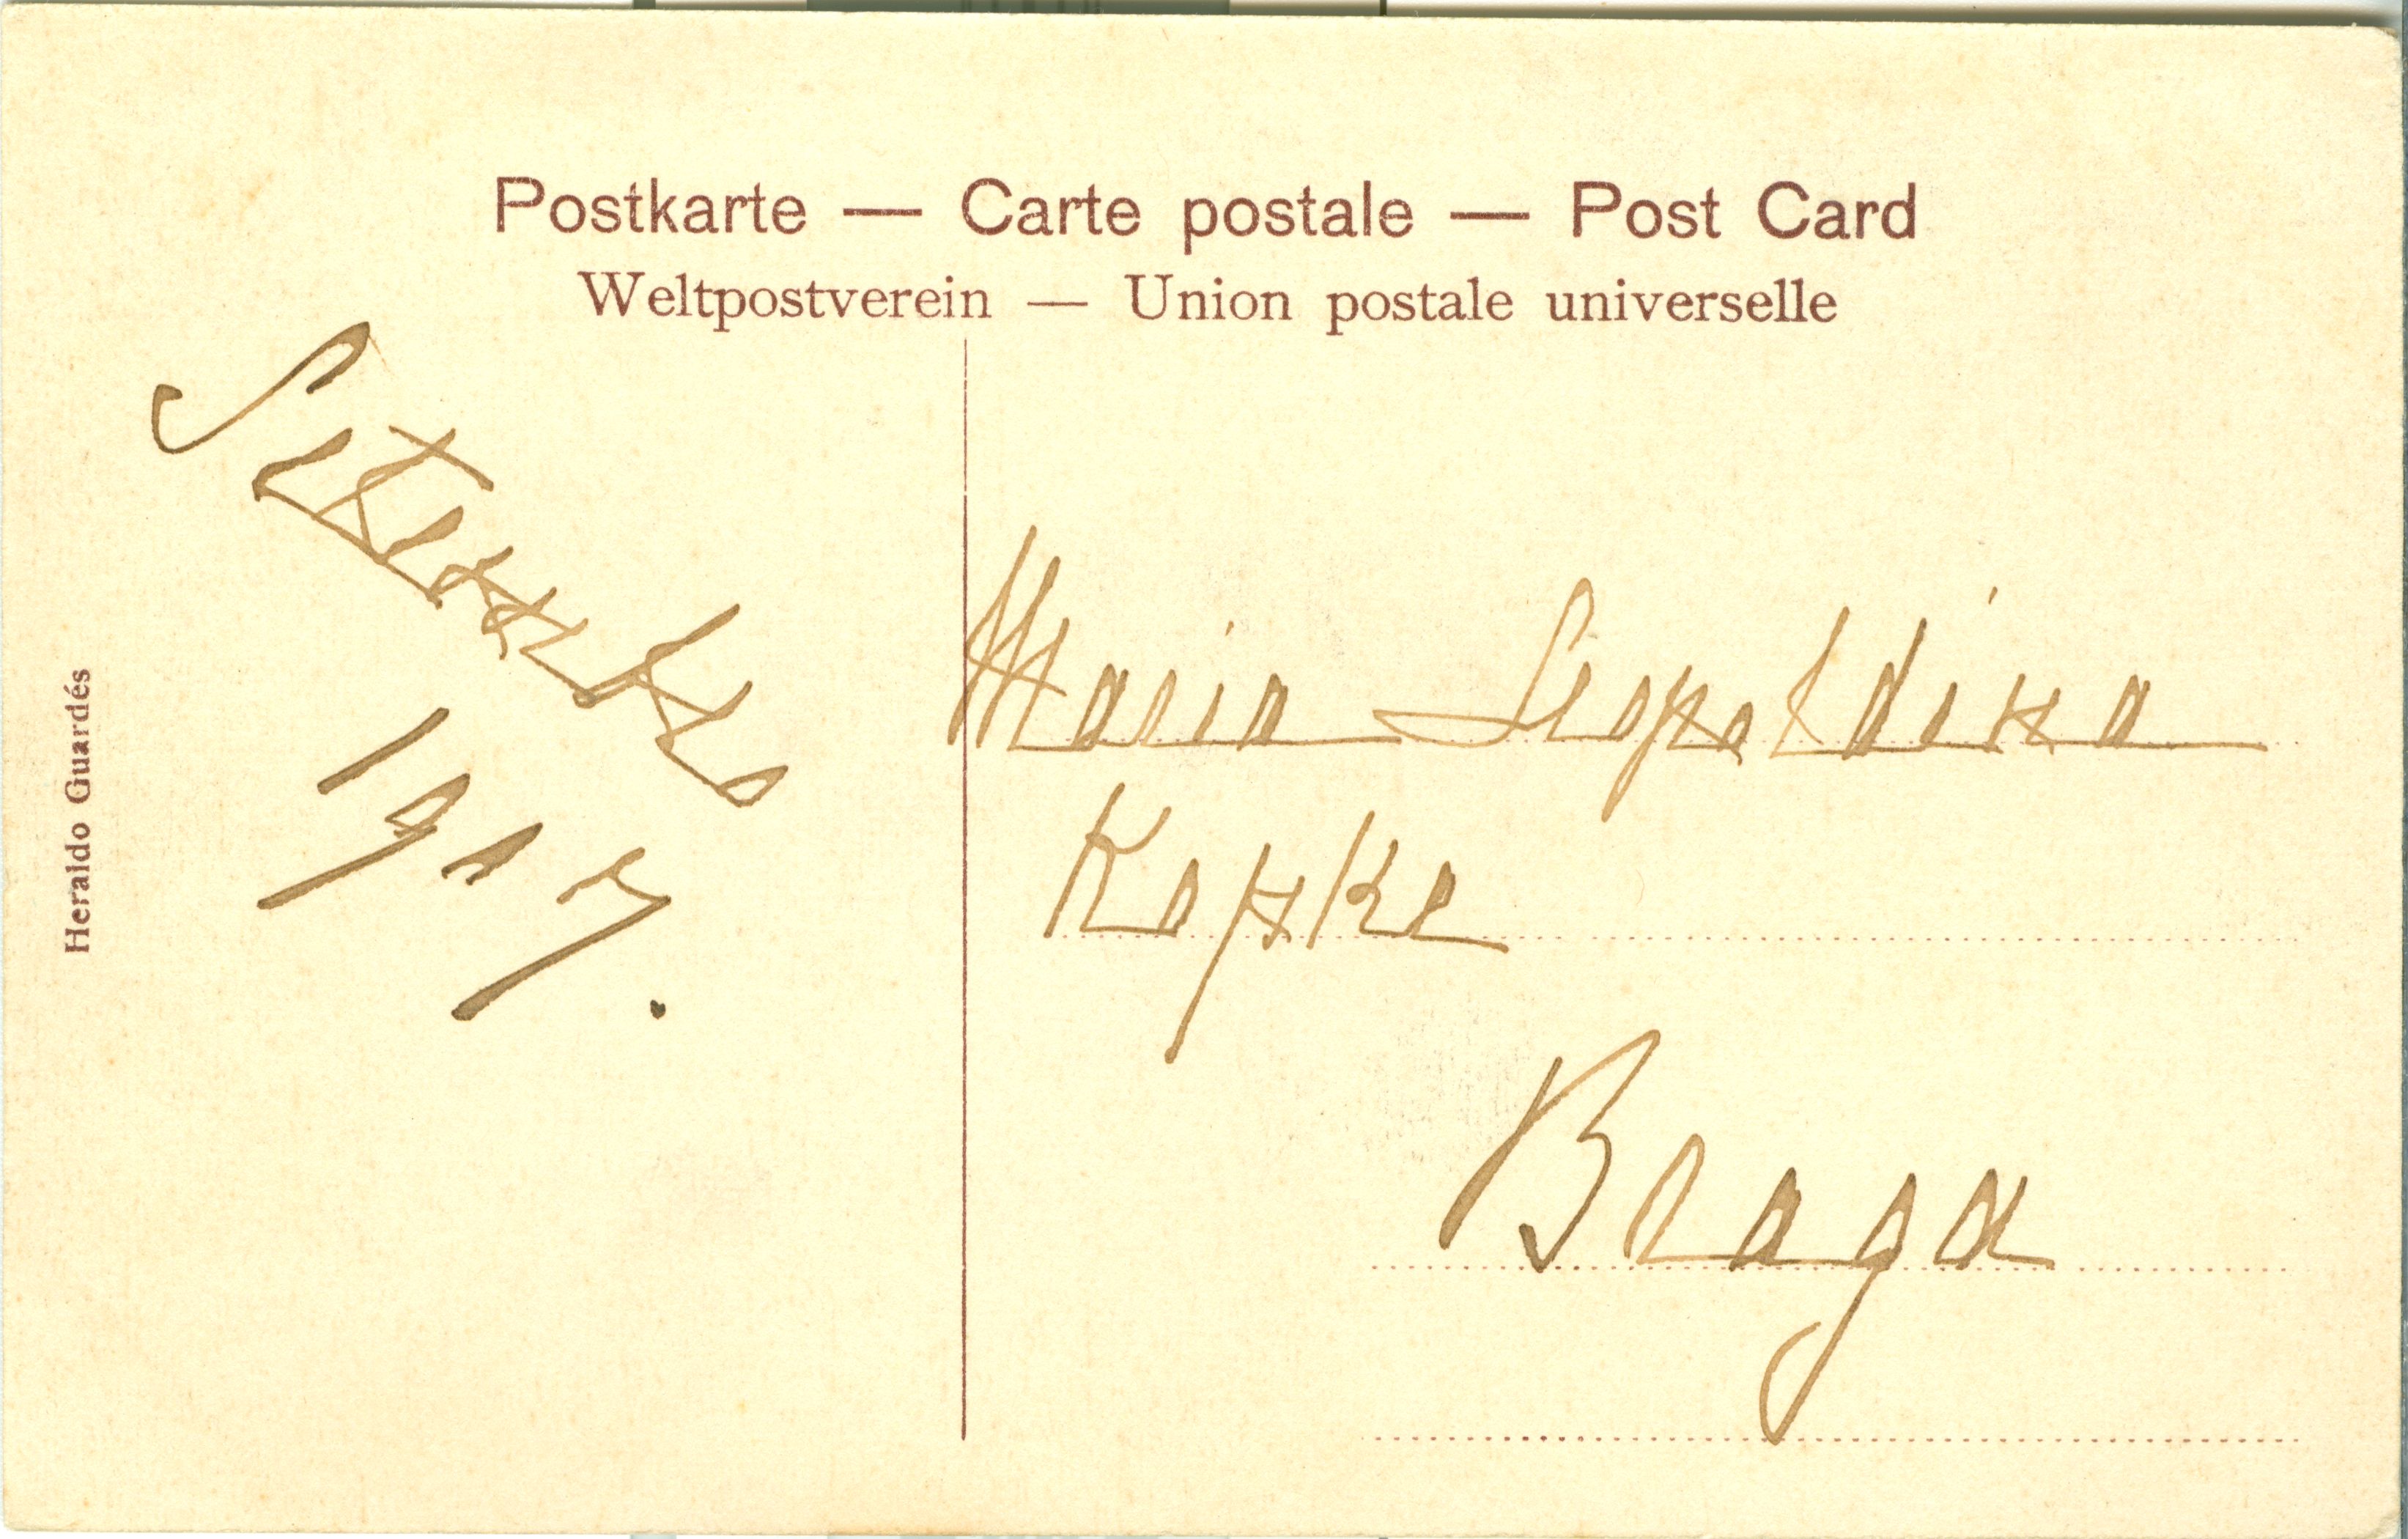 Postkarte — Carte postale — Post Card
Weltpostverein — Union postale universelle
Heraldo Guardés
Setembro
1907.
Maria Leopoldina
Kopke
Braga